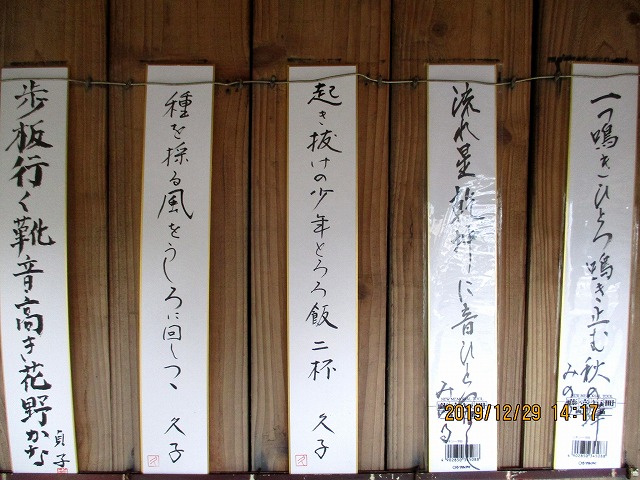 一つ鳴きひとつ鳴き止む秋の蝉
みのる
流れ星乾坤に音ひとつなし
みのる
起き抜けの少年とろろ飯二杯
久子
種を採る風をうしろに回しつゝ
久子
歩板行く靴音高き花野かな
貞子
2019/12/29 14:17